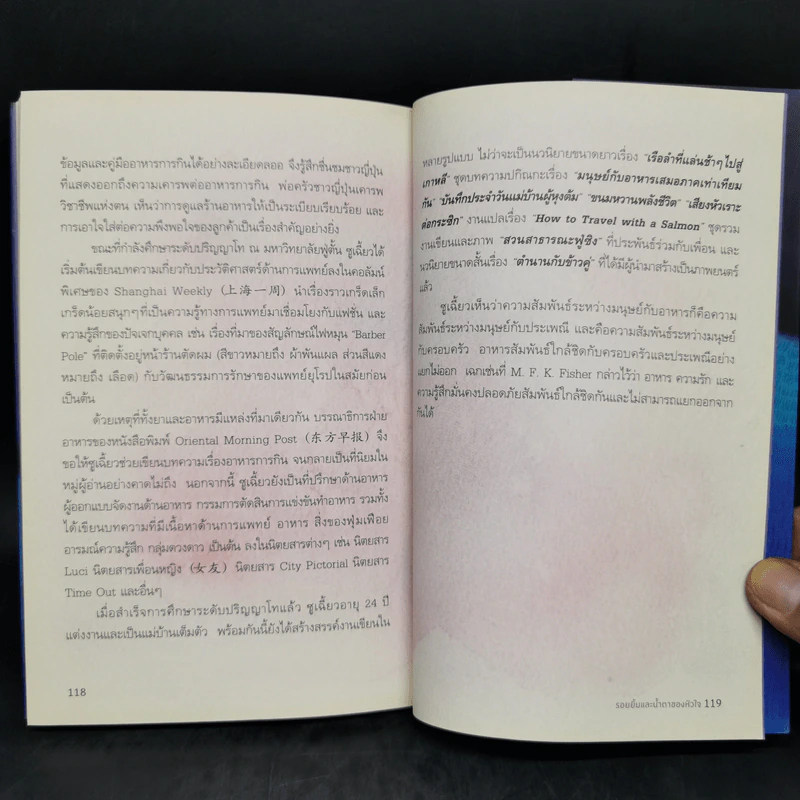 ข้อมูลและคู่มืออาหารการกินได้อย่างละเอียดลออ จึงรู้สึกชื่นชมชาวญี่ปุ่น
ที่แสดงออกถึงความเคารพต่ออาหารการกิน พ่อครัวชาวญี่ปุ่นเคารพ
วิชาชีพแห่งตน เห็นว่าการดูแลร้านอาหารให้เป็นระเบียบเรียบร้อย และ
การเอาใจใส่ต่อความพึงพอใจของลูกค้าเป็นเรื่องสำคัญอย่างยิ่ง
ขณะที่กำลังศึกษาระดับปริญญาโท ณ มหาวิทยาลัยฟู่ตั้น ซูเฉี้ยวได้
เริ่มต้นเขียนบทความเกี่ยวกับประวัติศาสตร์ด้านการแพทย์ลงในคอลัมน์
พิเศษของ Shanghai Weekly (上海一周) นำเรื่องราวเกร็ดเล็ก
เกร็ดน้อยสนุกๆที่เป็นความรู้ทางการแพทย์มาเชื่อมโยงกับแฟชั่น และ
ความรู้สึกของปัจเจกบุคคล เช่น เรื่องที่มาของสัญลักษณ์ไฟหมุน "Barber
Pole" ที่ติดตั้งอยู่หน้าร้านตัดผม (สีขาวหมายถึง ผ้าพันแผล ส่วนสีแดง
หมายถึง เลือด) กับวัฒนธรรมการรักษาของแพทย์ยุโรปในสมัยก่อน
เป็นต้น
ด้วยเหตุที่ทั้งยาและอาหารมีแหล่งที่มาเดียวกัน บรรณาธิการฝ่าย
อาหารของหนังสือพิมพ์ Oriental Morning Post (东方早报) จึง
ขอให้ซูเฉี้ยวช่วยเขียนบทความเรื่องอาหารการกิน จนกลายเป็นที่นิยมใน
หมู่ผู้อ่านอย่างคาดไม่ถึง นอกจากนี้ ซูเฉี้ยวยังเป็นที่ปรึกษาด้านอาหาร
ผู้ออกแบบจัดงานด้านอาหาร กรรมการตัดสินการแข่งขันทำอาหาร รวมทั้ง
ได้เขียนบทความที่มีเนื้อหาด้านการแพทย์ อาหาร สิ่งของฟุ่มเฟือย
อารมณ์ความรู้สึก กลุ่มดวงดาว เป็นต้น ลงในนิตยสารต่างๆ เช่น นิตยสาร
Luci นิตยสารเพื่อนหญิง (女友) นิตยสาร City Pictorial นิตยสาร
Time Out และอื่นๆ
เมื่อสำเร็จการศึกษาระดับปริญญาโทแล้ว ซูเฉี้ยวอายุ 24 ปี
แต่งงานและเป็นแม่บ้านเต็มตัว พร้อมกันนี้ยังได้สร้างสรรค์งานเขียนใน
118
หลายรูปแบบ ไม่ว่าจะเป็นนวนิยายขนาดยาวเรื่อง "เรือลำที่แล่นช้าๆ ไปสู่
เกาหลี" ชุดบทความปกิณกะเรื่อง "มนุษย์กับอาหารเสมอภาคเท่าเทียม
กัน" "บันทึกประจำวันแม่บ้านผู้หุงต้ม" "ขนมหวานพลังชีวิต" "เสียงหัวเราะ
ต่อกระซิก" งานแปลเรื่อง "How to Travel with a Salmon" ชุดรวม
งานเขียนและภาพ "สวนสาธารณะฟู่ซิง" ที่ประพันธ์ร่วมกับเพื่อน และ
นวนิยายขนาดสั้นเรื่อง "ตำนานกับข้าวคู่" ที่ได้มีผู้นำมาสร้างเป็นภาพยนตร์
แล้ว
ซูเฉี้ยวเห็นว่าความสัมพันธ์ระหว่างมนุษย์กับอาหารก็คือความ
สัมพันธ์ระหว่างมนุษย์กับประเพณี และคือความสัมพันธ์ระหว่างมนุษย์
กับครอบครัว อาหารสัมพันธ์ใกล้ชิดกับครอบครัวและประเพณีอย่าง
แยกไม่ออก เฉกเช่นที่ M. F. K. Fisher กล่าวไว้ว่า อาหาร ความรัก และ
ความรู้สึกมั่นคงปลอดภัยสัมพันธ์ใกล้ชิดกันและไม่สามารถแยกออกจาก
กันได้
รอยยิ้มและน้ำตาของหัวใจ 119